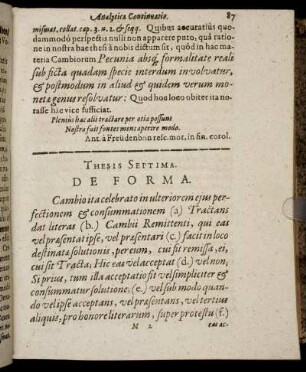 Analytica Continuatio. 87
misimus, collat. cap. 3. n. 2. & seqq. Quibus accuratius quo-
dammodò perspectis nulli non apparere puto, quâ ratio-
ne in nostra hac thesi à nobis dictum sit, quòd in hac ma-
teria Cambiorum Pecunia absq, formalitate reali
sub ficta quadam specie interdum involvatur,
& postmodum in aliud & quidem verum mo-
neta genus resolvatur: Quod hoc loco obiter ita no-
tasse hic vice sufficiat.
Plenius hac alii tractare per otia possunt
Nostra fuit fontes mens aperire modo.
Ant. à Freüdenbon resc. mor. in fin. corol.
THESIS SEPTIMA.
DE FORMA.
Cambio ita celebrato in ulteriorem ejus per-
fectionem & consummationem (a) Tractans
dat literas (b.) Cambii Remittenti, qui eas
vel præsentat ipse, vel præsentari (c.) facit in loco
destinata solutionis, per eum, cui sit remissa, ei,
cui sit Tracta; Hic eas vel acceptat (d.) vel non;
Si prius, tum illa acceptatio fit vel simpliciter &
consummatur solutione; (e.) vel sub modo quan-
do vel ipse acceptans, vel præsentans, vel tertius
aliquis, pro honore literarum, super protestu (f.)
M 2 eas ac-